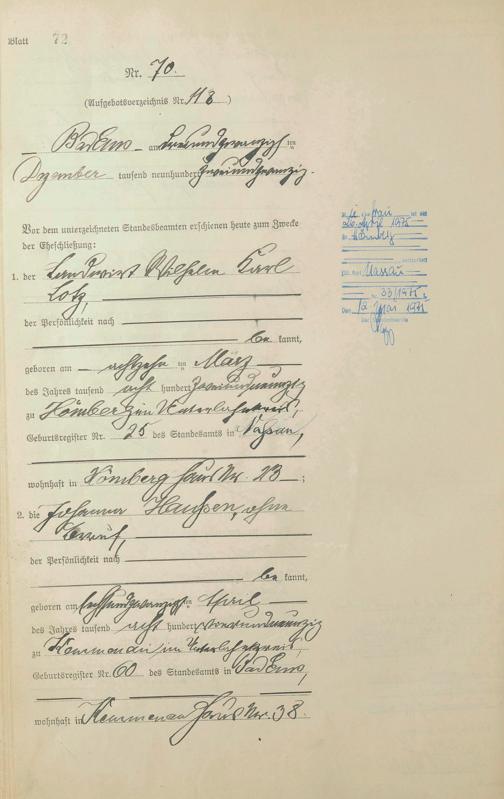 Blatt 72
Nr. 70.
(Aufgebotsverzeichnis Nr. 113)
Bad Ems am dreiundzwanzigsten
Dezember tausend neunhundert zweiundzwanzig.
Vor dem unterzeichneten Standesbeamten erschienen heute zum Zwecke
der Eheschließung:
1. der Landwirt Wilhelm Karl
Lotz,
der Persönlichkeit nach
be kannt,
geboren am achtzehnten März
des Jahres tausend acht hundert zweiundneunzig
zu Hömberg im Unterlahnkreis,
Geburtsregister Nr. 25 des Standesamts in Nassau,
wohnhaft in Hömberg Haus Nr. 23;
2. die Johanna ohne
Beruf,
der Persönlichkeit nach
be kannt,
geboren am sechsundzwanzigsten April
des Jahres tausend acht hundert
zu Kemmenau im Unterlahnkreis,
Geburtsregister Nr. 60 des Standesamts in Bad Ems,
wohnhaft in Kemmenau Haus Nr. 38.
frau
1975
in Hömberg
Nassau
Nr. 33/1975
Den 1975